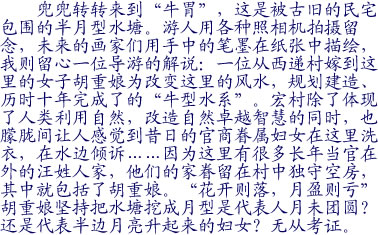 兜兜转转来到“牛胃”，这是被古旧的民宅
包围的半月型水塘。游人用各种照相机拍摄留
念，未来的画家们用手中的笔墨在纸张中描绘，
我则留心一位导游的解说：一位从西递村嫁到这
里的女子胡重娘为改变这里的风水，规划建造、
历时十年完成了的“牛型水系”。宏村除了体现
了人类利用自然，改造自然卓越智慧的同时，也
朦胧间让人感觉到昔日的官商眷属妇女在这里洗
衣，在水边倾诉……因为这里有很多长年当官在
外的汪姓人家，他们的家眷留在村中独守空房，
其中就包括了胡重娘。“花开则落，月盈则亏”
胡重娘坚持把水塘挖成月型是代表人月未团圆？
还是代表半边月亮升起来的妇女？无从考证。